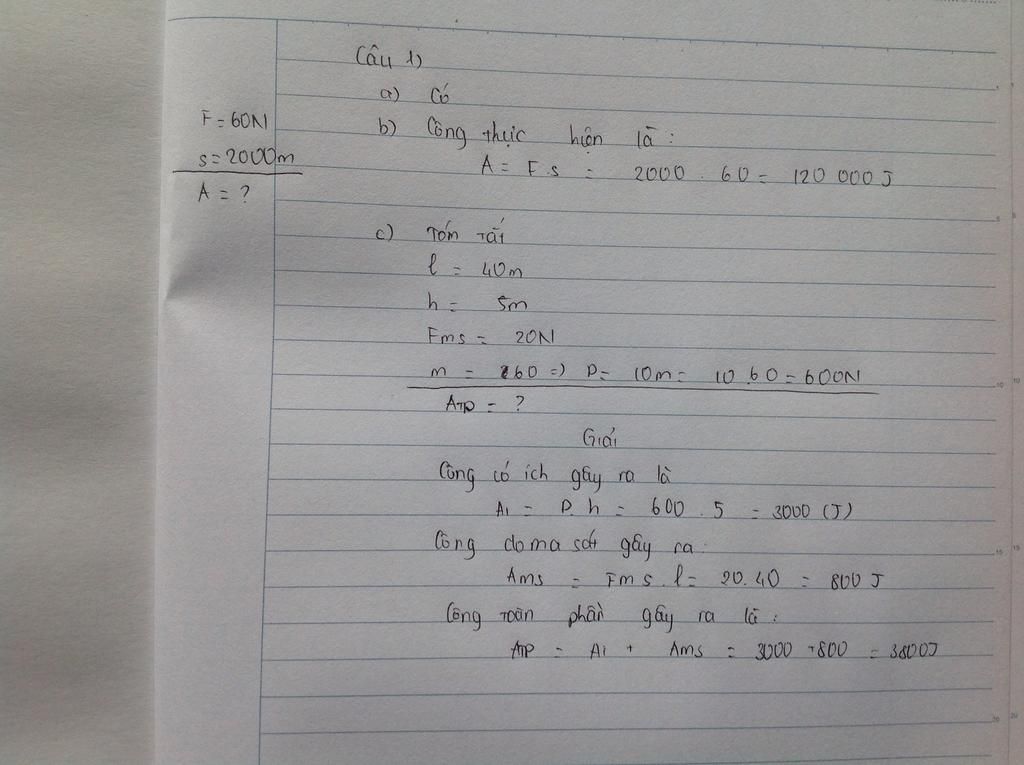 Câu 1)
a) Có
F = 60N
b) Công thực hiện là :
s = 2000m
A = F.s = 2000 . 60 = 120 000 J
A = ?
c) Tóm tắt
l = 40m
h = 5m
Fms = 20N
m = 60 => P = 10m = 10.60 = 600N
ATP = ?
Giải
Công có ích gây ra là
A1 = P.h = 600 . 5 = 3000 (J)
Công do ma sát gây ra :
Ams = Fms . l = 20.40 = 800 J
Công toàn phần gây ra là :
ATP = A1 + Ams = 3000 + 800 = 3800J
10
15
20